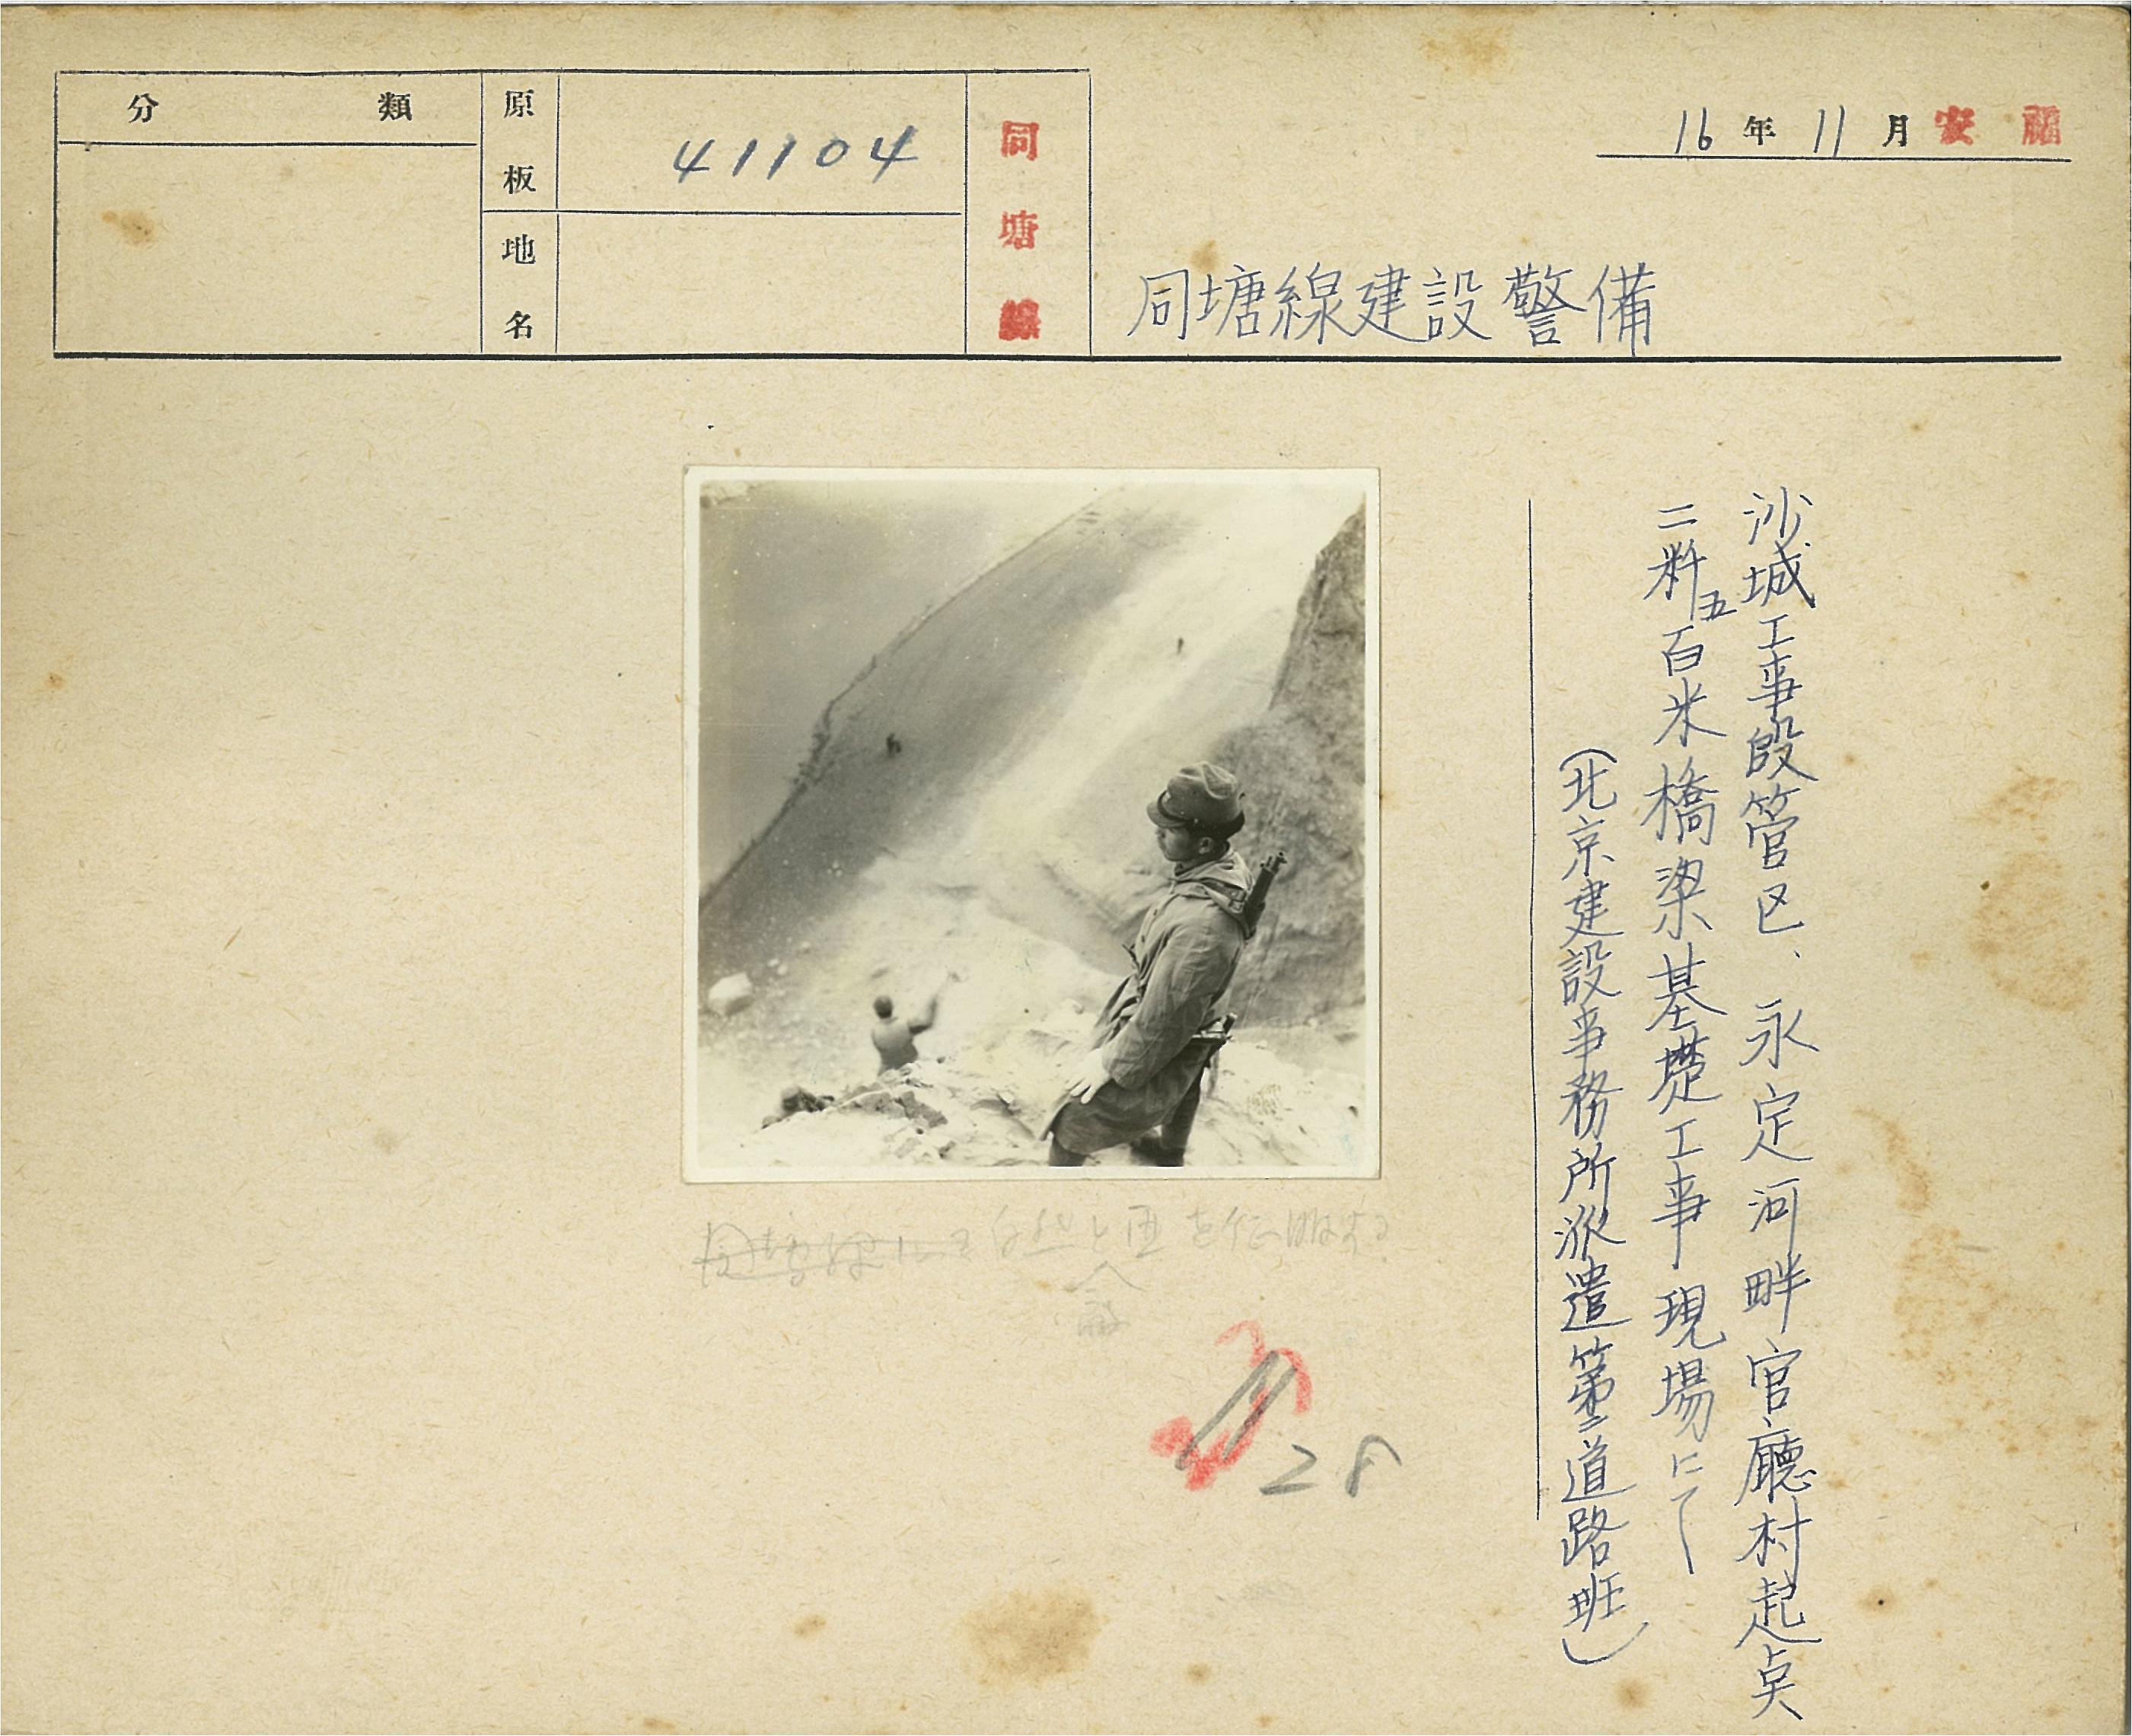 分類
原板
41104
地名
同塘線
16年11月 安福
同塘線建設警備
沙城工事段管区、永定河畔官廳村起点
二粁五百米橋梁基礎工事現場にて
(北京建設事務所派遣第二道路班)
28